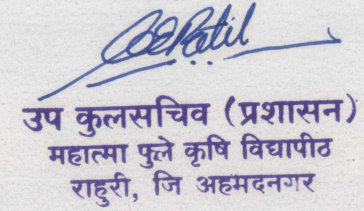 उप कुलसचिव (प्रशासन)
महात्मा फुले कृषि विद्यापीठ
राहुरी, जि अहमदनगर